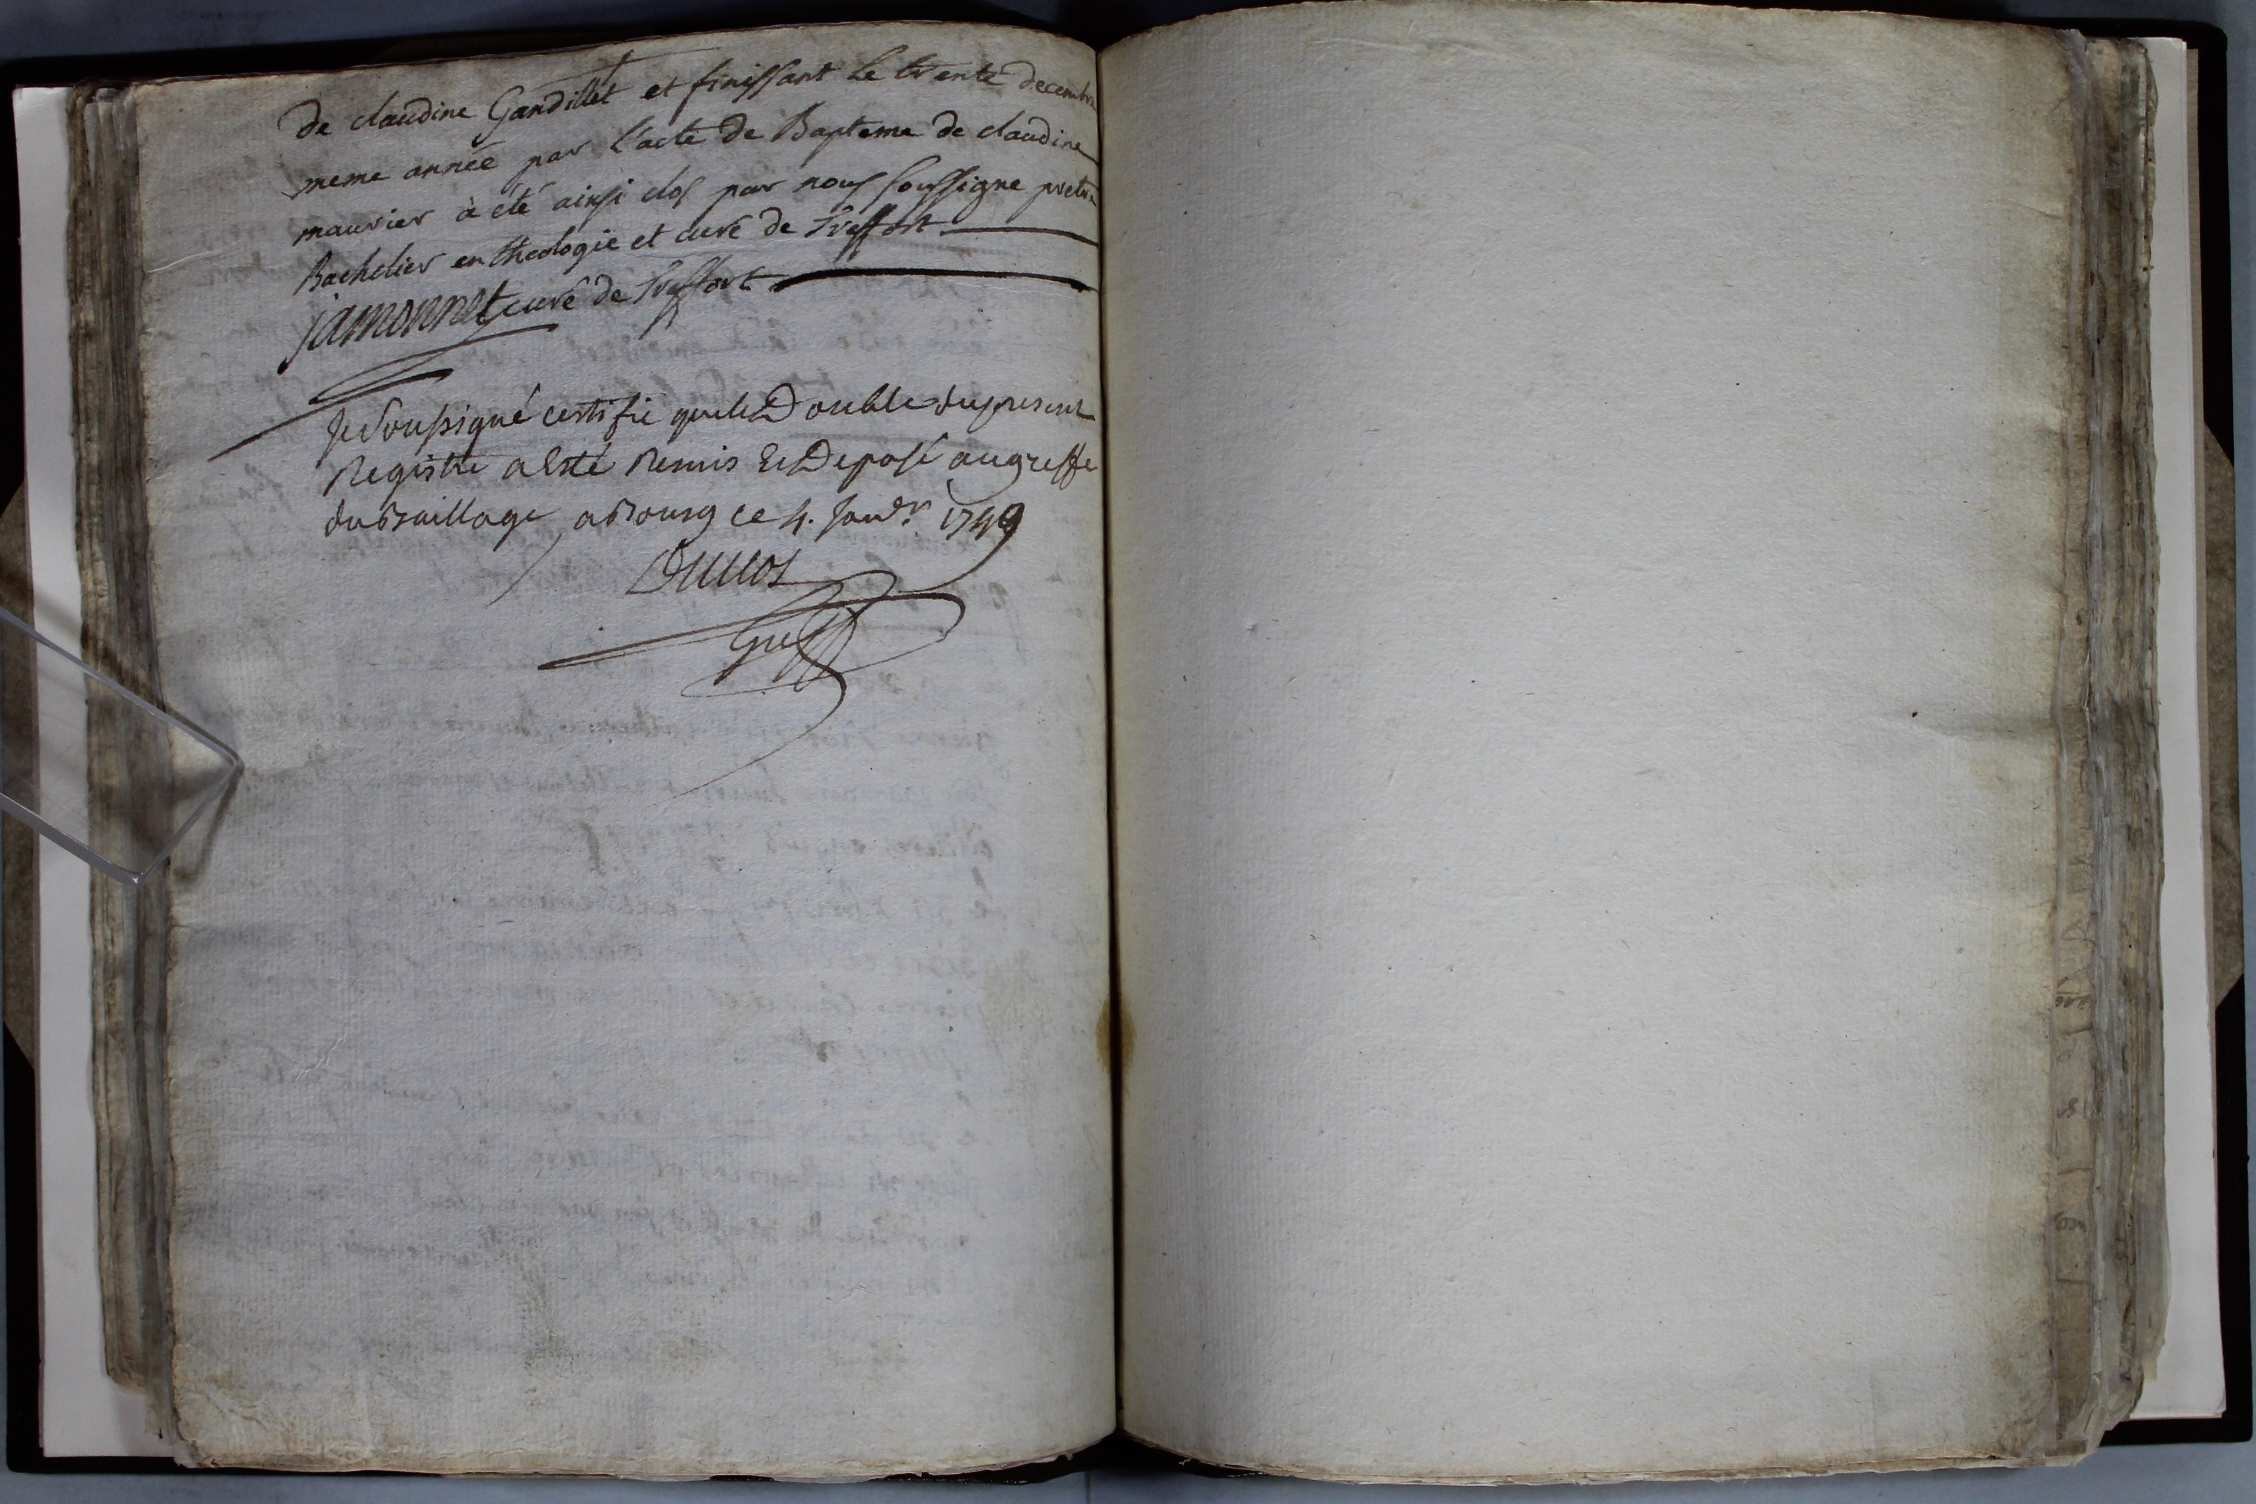 de claudine Gandillet et finissant le trente decembre
meme année par l'acte de Bapteme de claudine
maurier à été ainsi clos par nous soussigne pretre
Bachelier en theologie et curé de treffort
jamonnet curé de treffort
Je soussigné certifie que le Double du present
Registre a esté Remis et Deposé au greffe
du Bailliage a Bourg ce 4. Janvr. 1749
Duclos
Greff